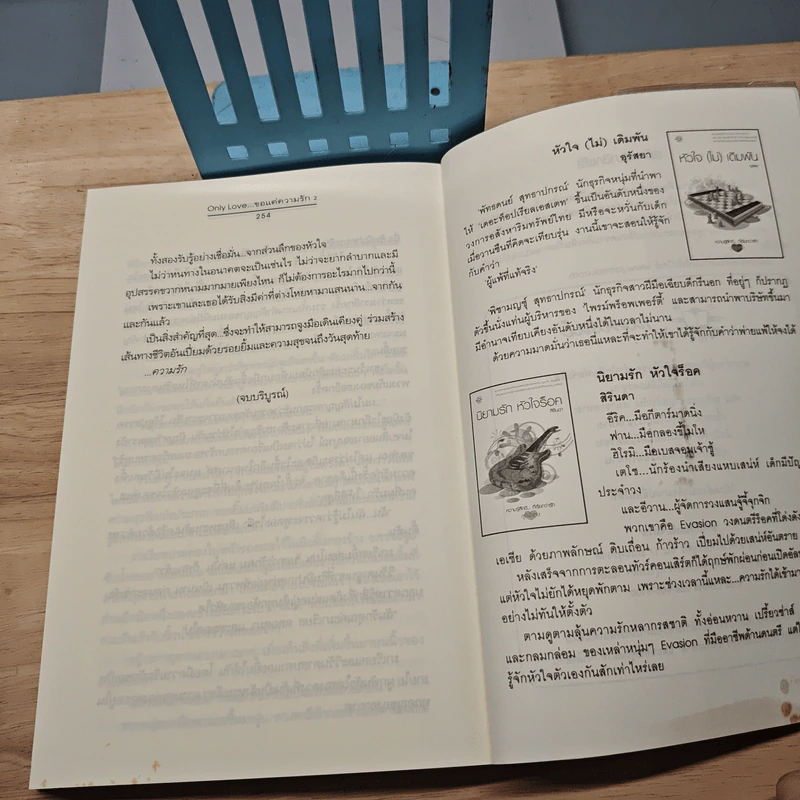 Only Love...ขอแค่ความรัก 2
254
ทั้งสองรับรู้อย่างเชื่อมั่น...จากส่วนลึกของหัวใจ
ไม่ว่าหนทางในอนาคตจะเป็นเช่นไร ไม่ว่าจะยากลำบากและมี
อุปสรรคขวากหนามมากมายเพียงไหน ก็ไม่ต้องการอะไรมากไปกว่านี้
เพราะเขาและเธอได้รับสิ่งมีค่าที่ต่างโหยหามาแสนนาน...จากกัน
และกันแล้ว
เป็นสิ่งสำคัญที่สุด...ซึ่งจะทำให้สามารถจูงมือเดินเคียงคู่ ร่วมสร้าง
เส้นทางชีวิตอันเปี่ยมด้วยรอยยิ้มและความสุขจนถึงวันสุดท้าย
...ความรัก
(จบบริบูรณ์)
หัวใจ (ไม่) เดิมพัน
อุรัสยา
'พัทธดนย์ สุทธาปกรณ์' นักธุรกิจหนุ่มที่นำพา
ให้ 'เดอะท็อปเรียลเอสเตท' ขึ้นเป็นอันดับหนึ่งของ
วงการอสังหาริมทรัพย์ไทย มีหรือจะหวั่นกับเด็ก
เมื่อวานซืนที่คิดจะเทียบรุ่น งานนี้เขาจะสอนให้รู้จัก
กับคำว่า
'ผู้แพ้ที่แท้จริง'
หัวใจ (ไม่) เดิมพัน
'พิชามญชุ์ สุทธาปกรณ์' นักธุรกิจสาวฝีมือเฉียบดีกรีนอก ที่อยู่ๆ ก็ปรากฏ
ตัวขึ้นนั่งแท่นผู้บริหารของ 'ไพรม์พร็อพเพอร์ตี้' และสามารถนำพาบริษัทขึ้นมา
มีอำนาจเทียบเคียงอันดับหนึ่งได้ในเวลาไม่นาน
ด้วยความมาดมั่นว่าเธอนี่แหละที่จะทำให้เขาได้รู้จักกับคำว่าพ่ายแพ้ให้จงได้
นิยามรัก หัวใจร็อค
สิรินดา
นิยามรัก หัวใจร็อค
สิรินดา
อีริค...มือกีตาร์มาดนิ่ง
ฟาน...มือกลองขี้โมโห
ฮิโรมิ...มือเบสจอมเจ้าชู้
เตโช...นักร้องนำเสียงแหบเสน่ห์ เด็กมีปัญ
ประจำวง
และอีวาน...ผู้จัดการวงแสนจู้จี้จุกจิก
พวกเขาคือ Evasion วงดนตรีร็อคที่โด่งดัง
เอเชีย ด้วยภาพลักษณ์ ดิบเถื่อน ก้าวร้าว เปี่ยมไปด้วยเสน่ห์อันตราย
หลังเสร็จจากการตะลอนทัวร์คอนเสิร์ตก็ได้ฤกษ์พักผ่อนก่อนเปิดอัลบ
แต่หัวใจไม่ยักได้หยุดพักตาม เพราะช่วงเวลานี้แหละ...ความรักได้เข้ามา
อย่างไม่ทันให้ตั้งตัว
ตามดูตามลุ้นความรักหลากรสชาติ ทั้งอ่อนหวาน เปรี้ยวซ่าส์
และกลมกล่อม ของเหล่าหนุ่มๆ Evasion ที่มืออาชีพด้านดนตรี แต่ไ
รู้จักหัวใจตัวเองกันสักเท่าไหร่เลย